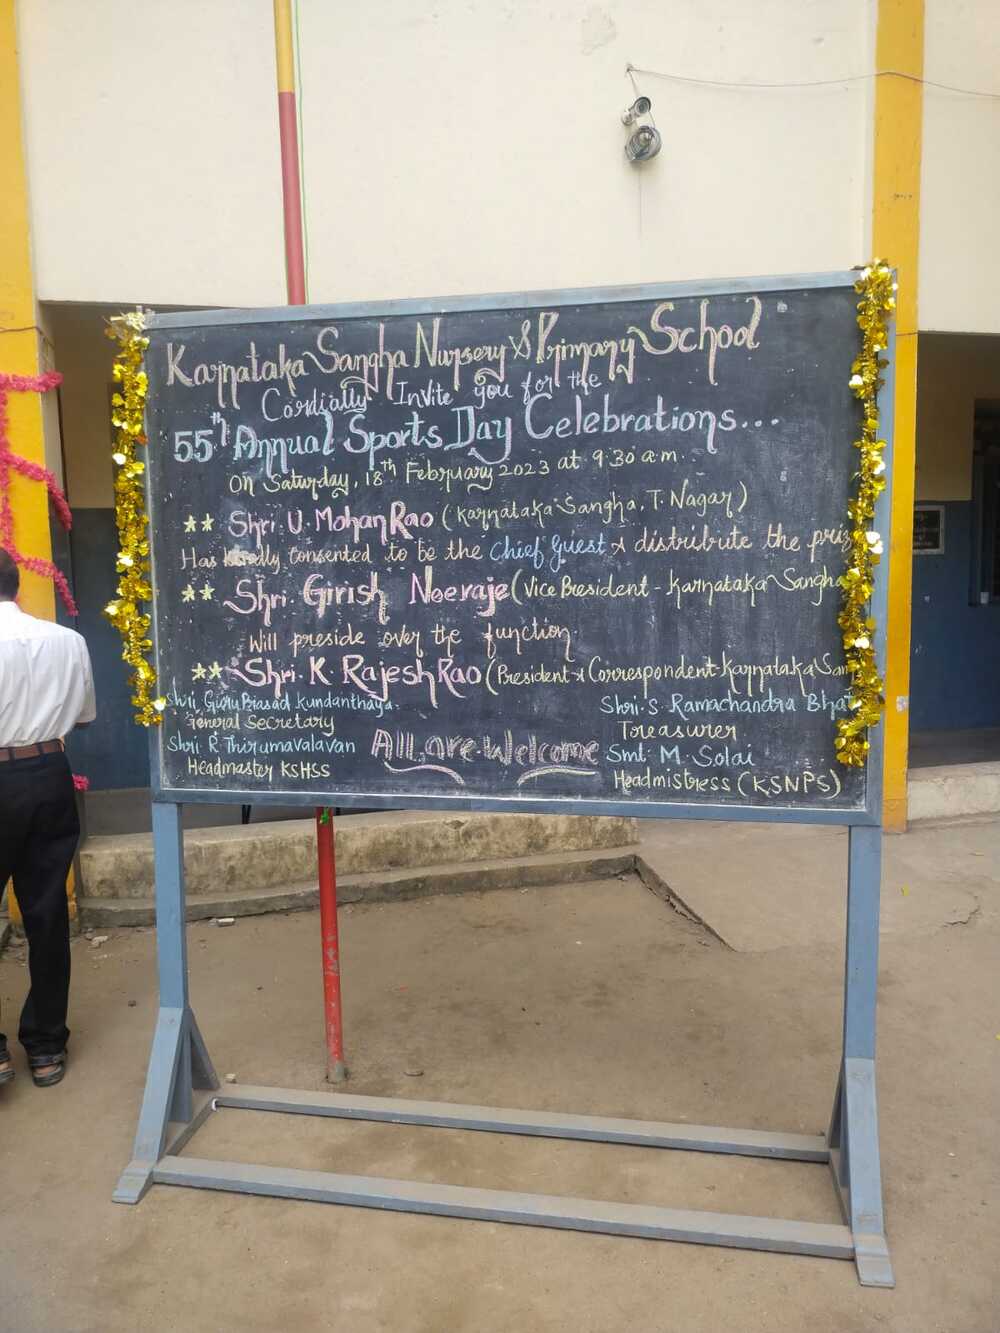 Karnataka Sangha Nursery & Primary School
Cordially Invite you for the
55th Annual Sports Day Celebrations...
On Saturday, 18th February 2023 at 9.30 a.m.
** Shri. U. Mohan Rao (Karnataka Sangha, T. Nagar)
Has kindly consented to be the Chief Guest & distribute the priz
** Shri. Girish Neeraje (Vice President - Karnataka Sangha
Will preside over the function.
** Shri. K. Rajesh Rao (President & Correspondent-Karnataka San
Shri. Guru Prasad Kundanthaya.
General Secretary
Shri. S. Ramachandra Bhat
Treasurer
Shri. R. Thirumavalavan
Headmaster KSHSS
All are Welcome
Smt. M. Solai
Headmistress (KSNPS)